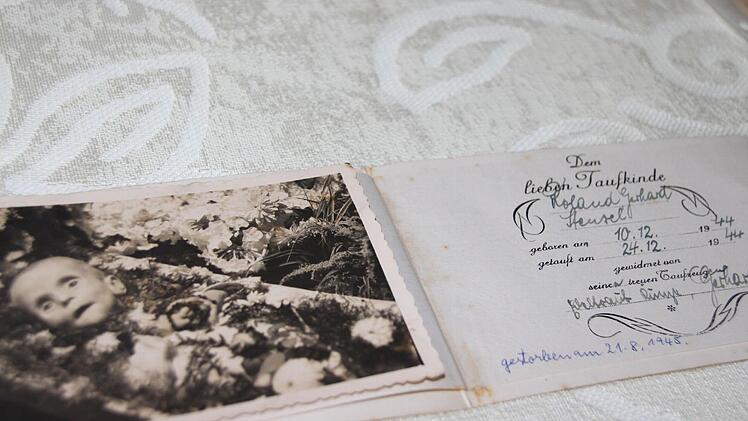 Dem
lieben Taufkinde
Roland Gerhart
Hensel
geboren am 10.12. 1944
getauft am 24.12. 1944
gewidmet von
seinen treuen Taufzeugen
Gerhar
*
gestorben am 21.8.1948.